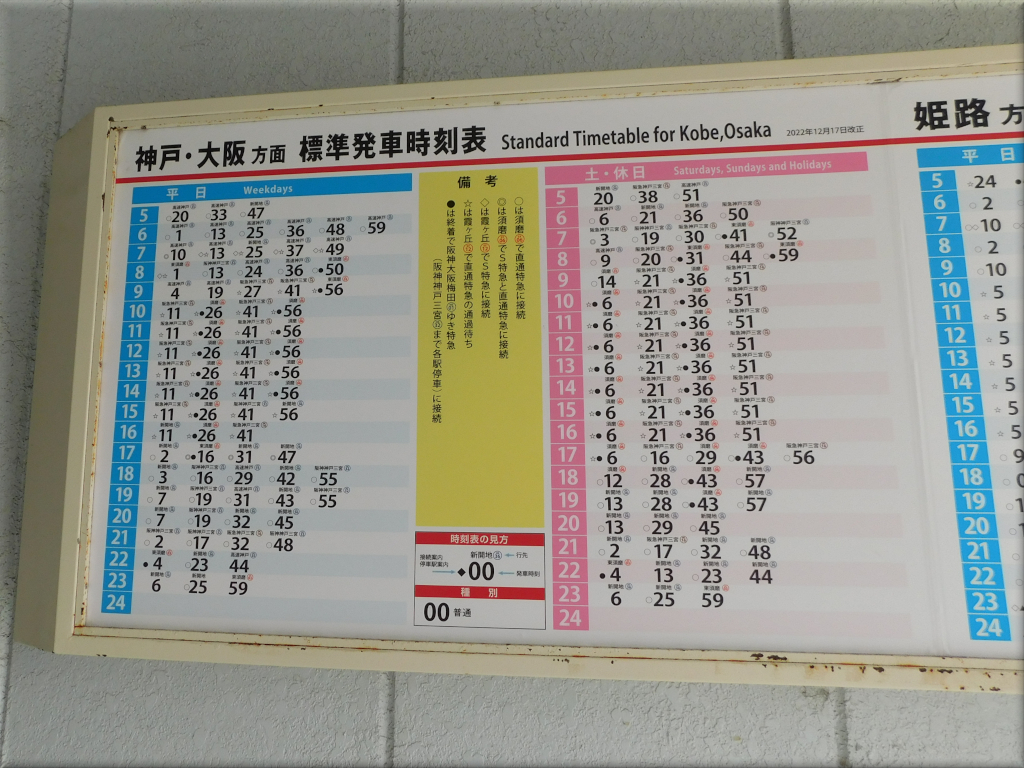 神戸・大阪 方面 標準発車時刻表 Standard Timetable for Kobe,Osaka 2022年12月17日改正
平 日 Weekdays
5 20 33 47
6 1 13 25 36 48 59
7 10 13 25 37 49
8 1 13 24 36 50
9 4 19 27 41 56
10 11 26 41 56
11 11 26 41 56
12 11 26 41 56
13 11 26 41 56
14 11 26 41 56
15 11 26 41 56
16 11 26 41
17 2 16 31 47
18 3 16 29 42 55
19 7 19 31 43 55
20 7 19 32 45
21 2 17 32 48
22 4 23 44
23 6 25 59
24
備 考
○は須磨で直通特急に接続
◎は須磨でS特急と直通特急に接続
◇は霞ヶ丘でS特急に接続
☆は霞ヶ丘で直通特急の通過待ち
●は終着で阪神大阪梅田ゆき特急
(阪神神戸三宮まで各駅停車)に接続
時刻表の見方
接続案内
停車駅案内
新開地 行先
◆00 発車時刻
種 別
00 普通
土・休日 Saturdays, Sundays and Holidays
5 20 38 51
6 6 21 36 50
7 3 19 30 41 52
8 9 20 31 44 59
9 14 21 36 51
10 6 21 36 51
11 6 21 36 51
12 6 21 36 51
13 6 21 36 51
14 6 21 36 51
15 6 21 36 51
16 6 21 36 51
17 6 16 29 43 56
18 12 28 43 57
19 13 28 43 57
20 13 29 45
21 2 17 32 48
22 4 13 23 44
23 6 25 59
24
姫路 方
平 日
5 24
6 2
7 10
8 2
9 10
10 5
11 5
12 5
13 5
14 5
15 5
16 5
17 9
18
19
20
21
22
23
24